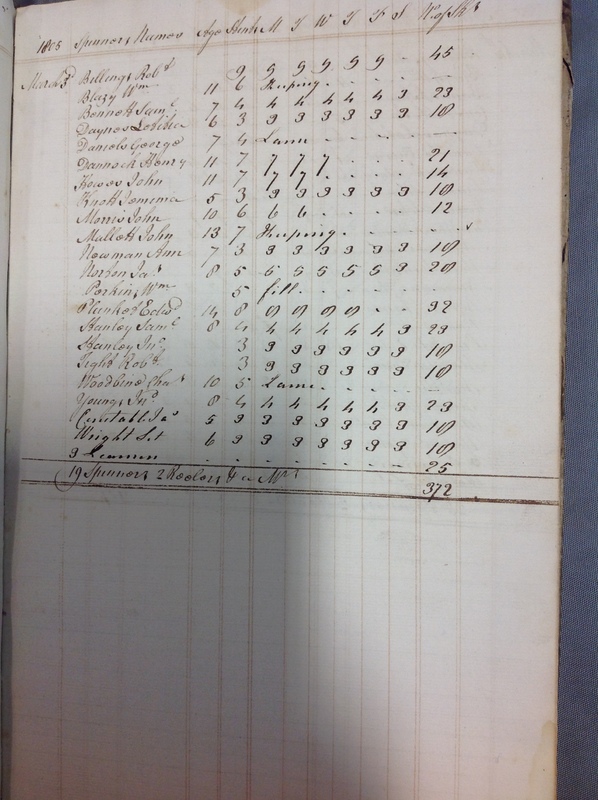 1805 Spinners Names Age Stint M T W T F S No of Sks
March 3d Billings Robt 9 9 9 9 9 9 - 45
Blazy Wm 11 6 Keeping - - - - —
Bennett Saml 7 4 4 4 4 4 4 3 23
Daynes Lobitha 6 3 3 3 3 3 3 3 18
Daniels George 7 4 Lame - - - - —
Dannock Henry 11 7 7 7 7 - - - 21
Kowes John 11 7 7 7 - - - - 14
Knott Jemima 5 3 3 3 3 3 3 3 18
Morris John 10 6 6 6 - - - - 12
Mallott John 13 7 Keeping - - - -
Newman Ann 7 3 3 3 3 3 3 3 18
Norton Jas 8 5 5 5 5 5 5 3 28
Perkins Wm 5 fill - - - - -
Plunket Edwd 14 8 8 8 8 8 - - 32
Stanley Saml 8 4 4 4 4 4 4 3 23
Stanley Jno 3 3 3 3 3 3 3 18
Tight Robt 3 3 3 3 3 3 3 18
Woodbine Chas 10 5 Lame - - - - —
Youngs Jno 8 4 4 4 4 4 4 3 23
Constable Jas 5 3 3 3 3 3 3 3 18
Wright St 6 3 3 3 3 3 3 3 18
3 - - - - - - 25
19 Spinners 2 Reelers & a Mrs
372